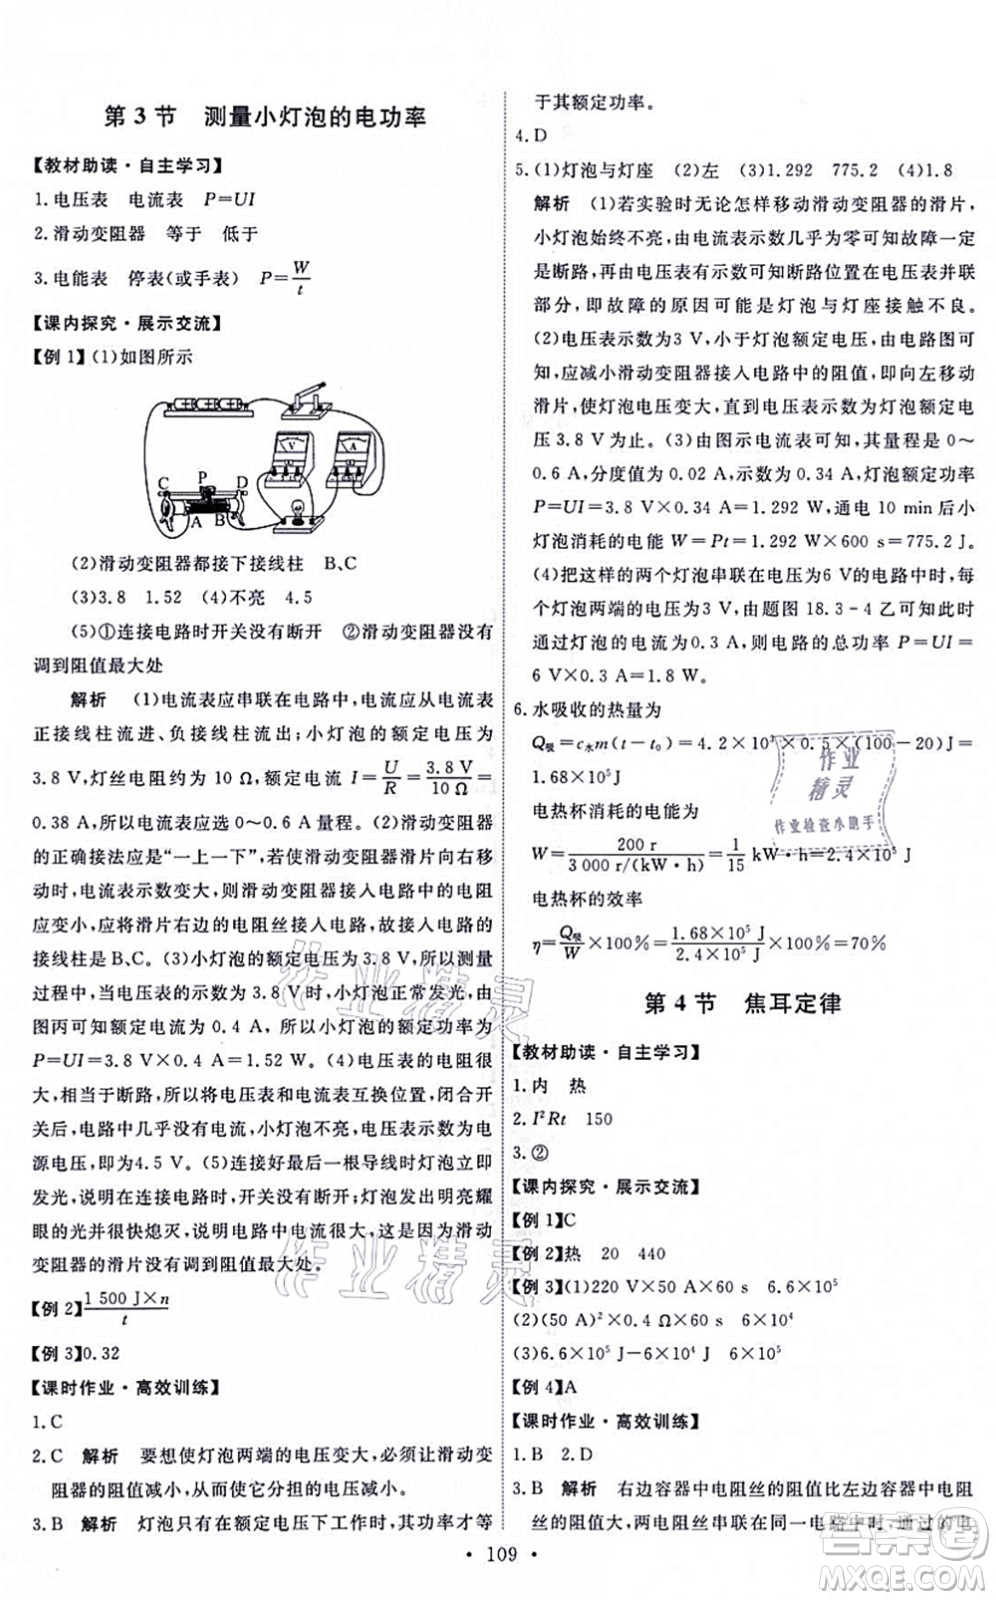 第 3 节　测量小灯泡的电功率
【教材助读·自主学习】
1. 电压表　电流表　P=UI
2. 滑动变阻器　等于　低于
3. 电能表　停表(或手表)　P=W/t
【课内探究·展示交流】
【例 1】(1)如图所示
V
A
C P D
A B
(2)滑动变阻器都接下接线柱　B、C
(3)3.8　1.52　(4)不亮　4.5
(5)①连接电路时开关没有断开　②滑动变阻器没有
调到阻值最大处
解析　(1)电流表应串联在电路中,电流应从电流表
正接线柱流进、负接线柱流出;小灯泡的额定电压为
3.8 V,灯丝电阻约为 10 Ω,额定电流 I=U/R=3.8 V/10 Ω=
0.38 A,所以电流表应选 0～0.6 A量程。(2)滑动变阻器
的正确接法应为“一上一下”,若使滑动变阻器滑片向右移
动时,电流表示数变大,则滑动变阻器接入电路中的电阻
应变小,应将滑片右边的电阻丝接入电路,故接入电路的
接线柱是B、C。(3)小灯泡的额定电压为3.8 V,所以测量
时当电压表的示数为 3.8 V 时,小灯泡正常发光,由
图丙可知额定电流为 0.4 A,所以小灯泡的额定功率为
P=UI=3.8 V×0.4 A=1.52 W。(4)电压表的电阻很
大,相当于断路,所以将电压表和电流表互换位置,闭合开
关后,电路中几乎没有电流,小灯泡不亮,电压表示数为电
源电压,即为4.5 V。(5)连接最后一根导线时灯泡立即
发光,说明在连接电路时没有断开开关;灯泡发出明亮耀
眼的光并很快熄灭,说明电路中电流很大,这是因为滑动
变阻器的滑片没有调到阻值最大处。
【例 2】1 500 J×n/t
【例 3】0.32
【课时作业·高效训练】
1. C
2. C　解析　要想使灯泡两端的电压变大,必须让滑动变
阻器的阻值减小,所以滑片向右移动。
3. B　解析　灯泡只有在额定电压下工作时,其功率才等
于其额定功率。
4. D
5. (1)灯泡与灯座　(2)左　(3)1.292　775.2　(4)1.8
解析　(1)若实验时无论怎样移动滑动变阻器的滑片,
小灯泡始终不亮,由电流表示数几乎为零可知故障一定
是断路,再由电压表有示数可知断路位置在电压表并联
部分,即故障的原因可能是灯泡与灯座接触不良。
(2)电压表示数为3 V,小于灯泡额定电压,由电路图可
知,应减小滑动变阻器接入电路中的阻值,即向左移动
滑片,使灯泡电压变大,直到电压表示数为灯泡额定电
压 3.8 V 为止。(3)由图示电流表可知,其量程为 0～
0.6 A,分度值为 0.02 A,示数为 0.34 A,灯泡额定功率
P=UI=3.8 V×0.34 A=1.292 W,通电 10 min后小
灯泡消耗的电能 W=Pt=1.292 W×600 s=775.2 J。
(4)把这样的两个灯泡串联在电压为6 V的电路中时,每
个灯泡两端的电压为3 V,由题图 18.3-4 乙可知此时
通过灯泡的电流为 0.3 A,则电路的总功率 P=UI=
6 V×0.3 A=1.8 W。
6. 水吸收的热量为
Q吸=c水m(t-t₀)=4.2×10³×0.5×(100-20)J=
1.68×10⁵ J
电热杯消耗的电能为
W=200 r/3 000 r/(kW·h)=1/15 kW·h=2.4×10⁵ J
电热杯的效率
η=Q吸/W×100%=1.68×10⁵ J/2.4×10⁵ J×100%=70%
第 4 节　焦耳定律
【教材助读·自主学习】
1. 内　热
2. I²Rt　150
3. ②
【课内探究·展示交流】
【例 1】C
【例 2】热　20　440
【例 3】(1)220 V×50 A×60 s　6.6×10⁵
(2)(50 A)²×0.4 Ω×60 s　6×10⁴
(3)6.6×10⁵ J-6×10⁴ J　6×10⁵
【例 4】A
【课时作业·高效训练】
1. B　2. D
3. B　解析　右边容器中电阻丝的阻值比左边容器中电阻
丝的阻值大,两电阻丝串联在同一电路中时,通过的电
• 109 •
作业精灵
作业检查小助手
作业精灵
作业精灵
答案圈
MXQE.COM